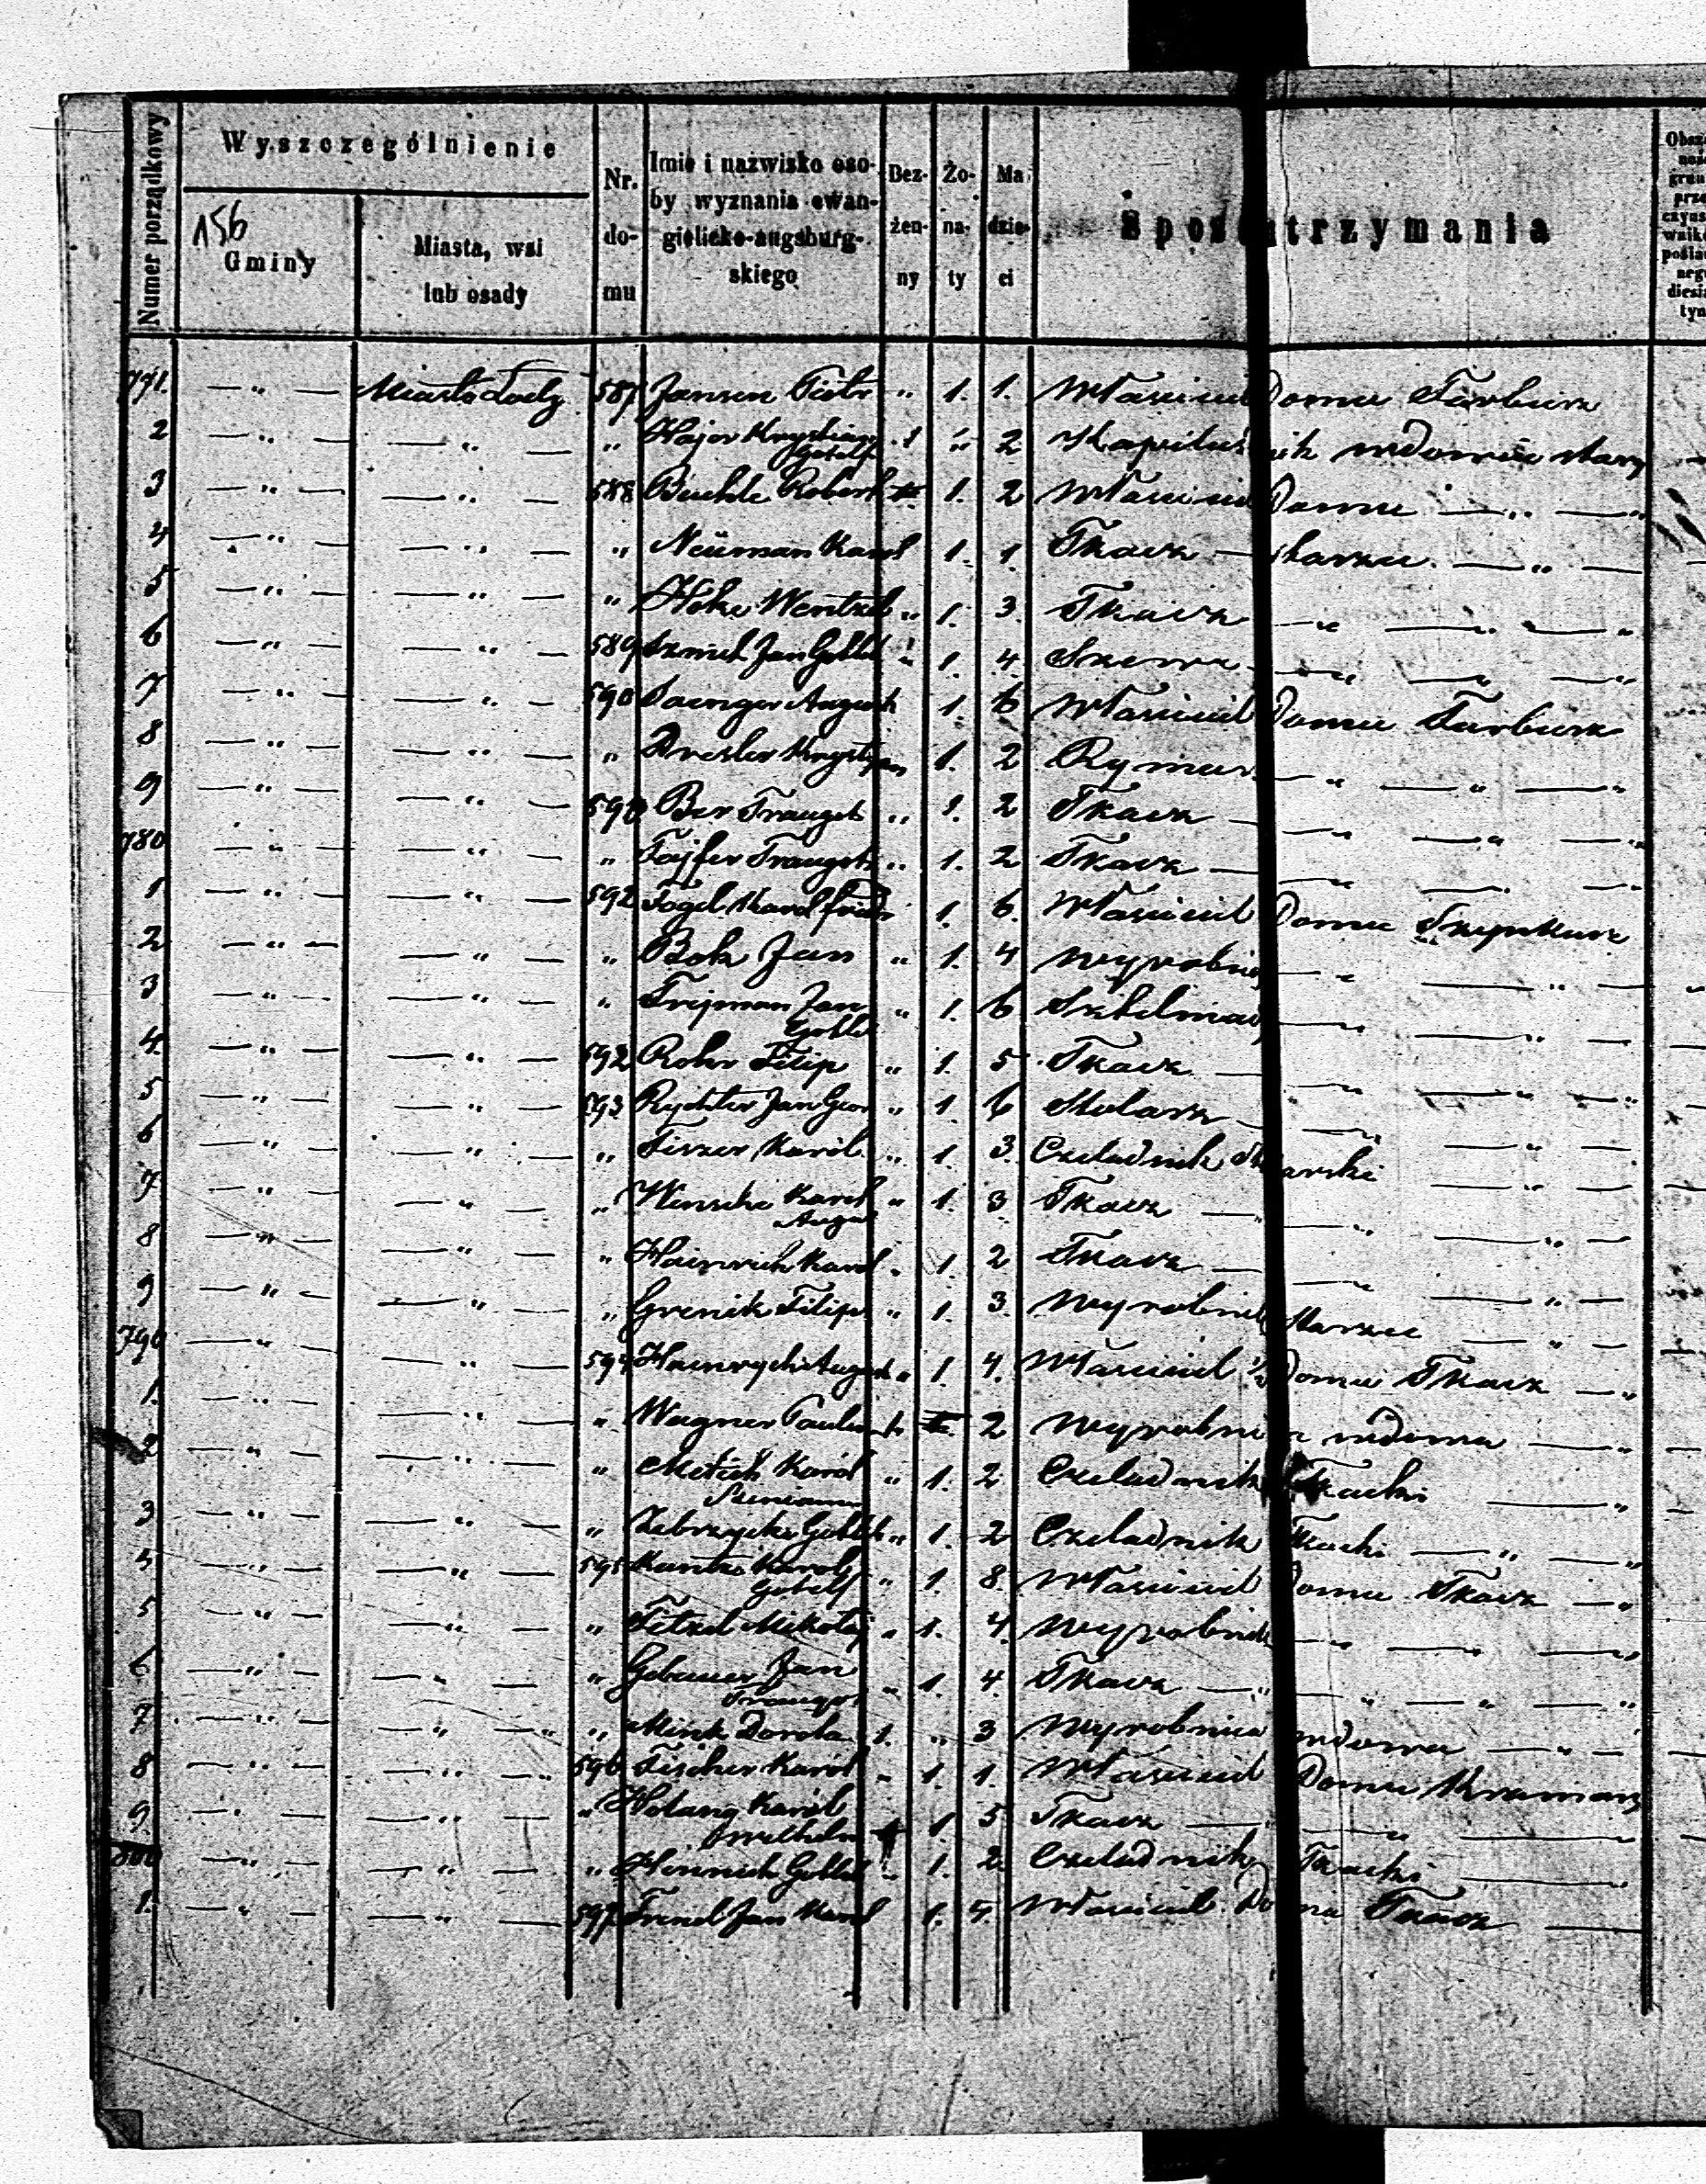 Numer porządkowy
Wyszczególnienie
156
Gminy
Miasta, wsi
lub osady
Nr.
do-
mu
Imie i nazwisko oso-
by wyznania ewan-
gielicko-augsburg-
skiego
Bez-
żen-
ny
Żo-
na-
ty
Ma
dzie-
ci
Sposó utrzymania
771. — " — Miasto Łodz 587 Jansen Piotr " 1. 1. Własciciel Domu Farbierz
2 — " — — " — " Hajor Krystian 1 " 2 nik wdowiec stary
Gotelf
3 — " — — " — 588 Robert 1. 2 Własciciel Domu — " — "
4 — " — — " — " Neüman Karol 1. 1. Tkacz — starzec — " —
5 — " — — " — " Hoke Wentzel " 1. 3. Tkacz — " — " — "
6 — " — — " — 589 Szmidt Jan Gottl " 1. 4. Szewc — " — " — "
7 — " — — " — 590 Saenger August 1. 6 Własciciel Domu Farbierz
8 — " — — " — " Dresler Krystyan 1. 2 Rymarz — " — " — "
9 — " — — " — 590 Ber Traugot " 1. 2 Tkacz — " — " — "
780 — " — — " — " Fajfer Traugott " 1. 2 Tkacz — " — " — "
1 — " — — " — 592 Fogel Karol Fridr 1. 6. Własciciel Domu Szynkarz
2 — " — — " — " Bok Jan " 1. 4 Wyrobnik — " — " —
3 — " — — " — " Frijman Jan " 1. 6 Sztelmach — " — " —
Gottl
4. — " — — " — 592 Rohr Filip " 1. 5 Tkacz — " — " —
5 — " — — " — 593 Rychter Jan Geor " 1. 6 Stolarz — " — " —
6 — " — — " — " Fiszer Karól " 1. 3. Czeladnik Stolarski — " —
7 — " — — " — " Karol " 1. 3 Tkacz — " — " —
August
8 — " — — " — " Hainrich Karol " 1. 2 Tkacz — " — " —
9 — " — — " — " Grenik Filip " 1. 3. Wyrobnik Starzec — " —
790 — " — — " — 594 Hainrych August " 1. 4. Własciciel ½ Domu Tkacz — "
1. — " — — " " Wagner Paulina 2 Wyrobnica wdowa — "
2 — " — — " — " Karól " 1. 2 Czeladnik Tkacki — "
3 — " — — " — " Zebrzycki Gottlieb " 1. 2 Czeladnik Tkacki — " — "
4 — " — — " — 595 Kuntze Karol " 1. 8. Własciciel Domu Tkacz — "
Gotelf
5 — " — — " — " Titzel Mikołaj " 1. 4. Wyrobnik — " — " — "
6 — " — — " — " Gebauer Jan " 1. 4. Tkacz — " — " — "
Traugot
7 — " — — " — " Mink Dorota 1. " 3 Wyrobnica wdowa — " —
8 — " — — " — 596 Fischer Karól " 1. 1. Własciciel Domu Kramarz
9 — " — — " — " Karól 1 5 Tkacz — " —
Wilhelm
800 — " — — " — " Heinrich Gottlieb " 1. 2 Czeladnik Tkacki —
1. — " — — " — 597 Jan Karol 1. 4. Własciciel Domu Tkacz —